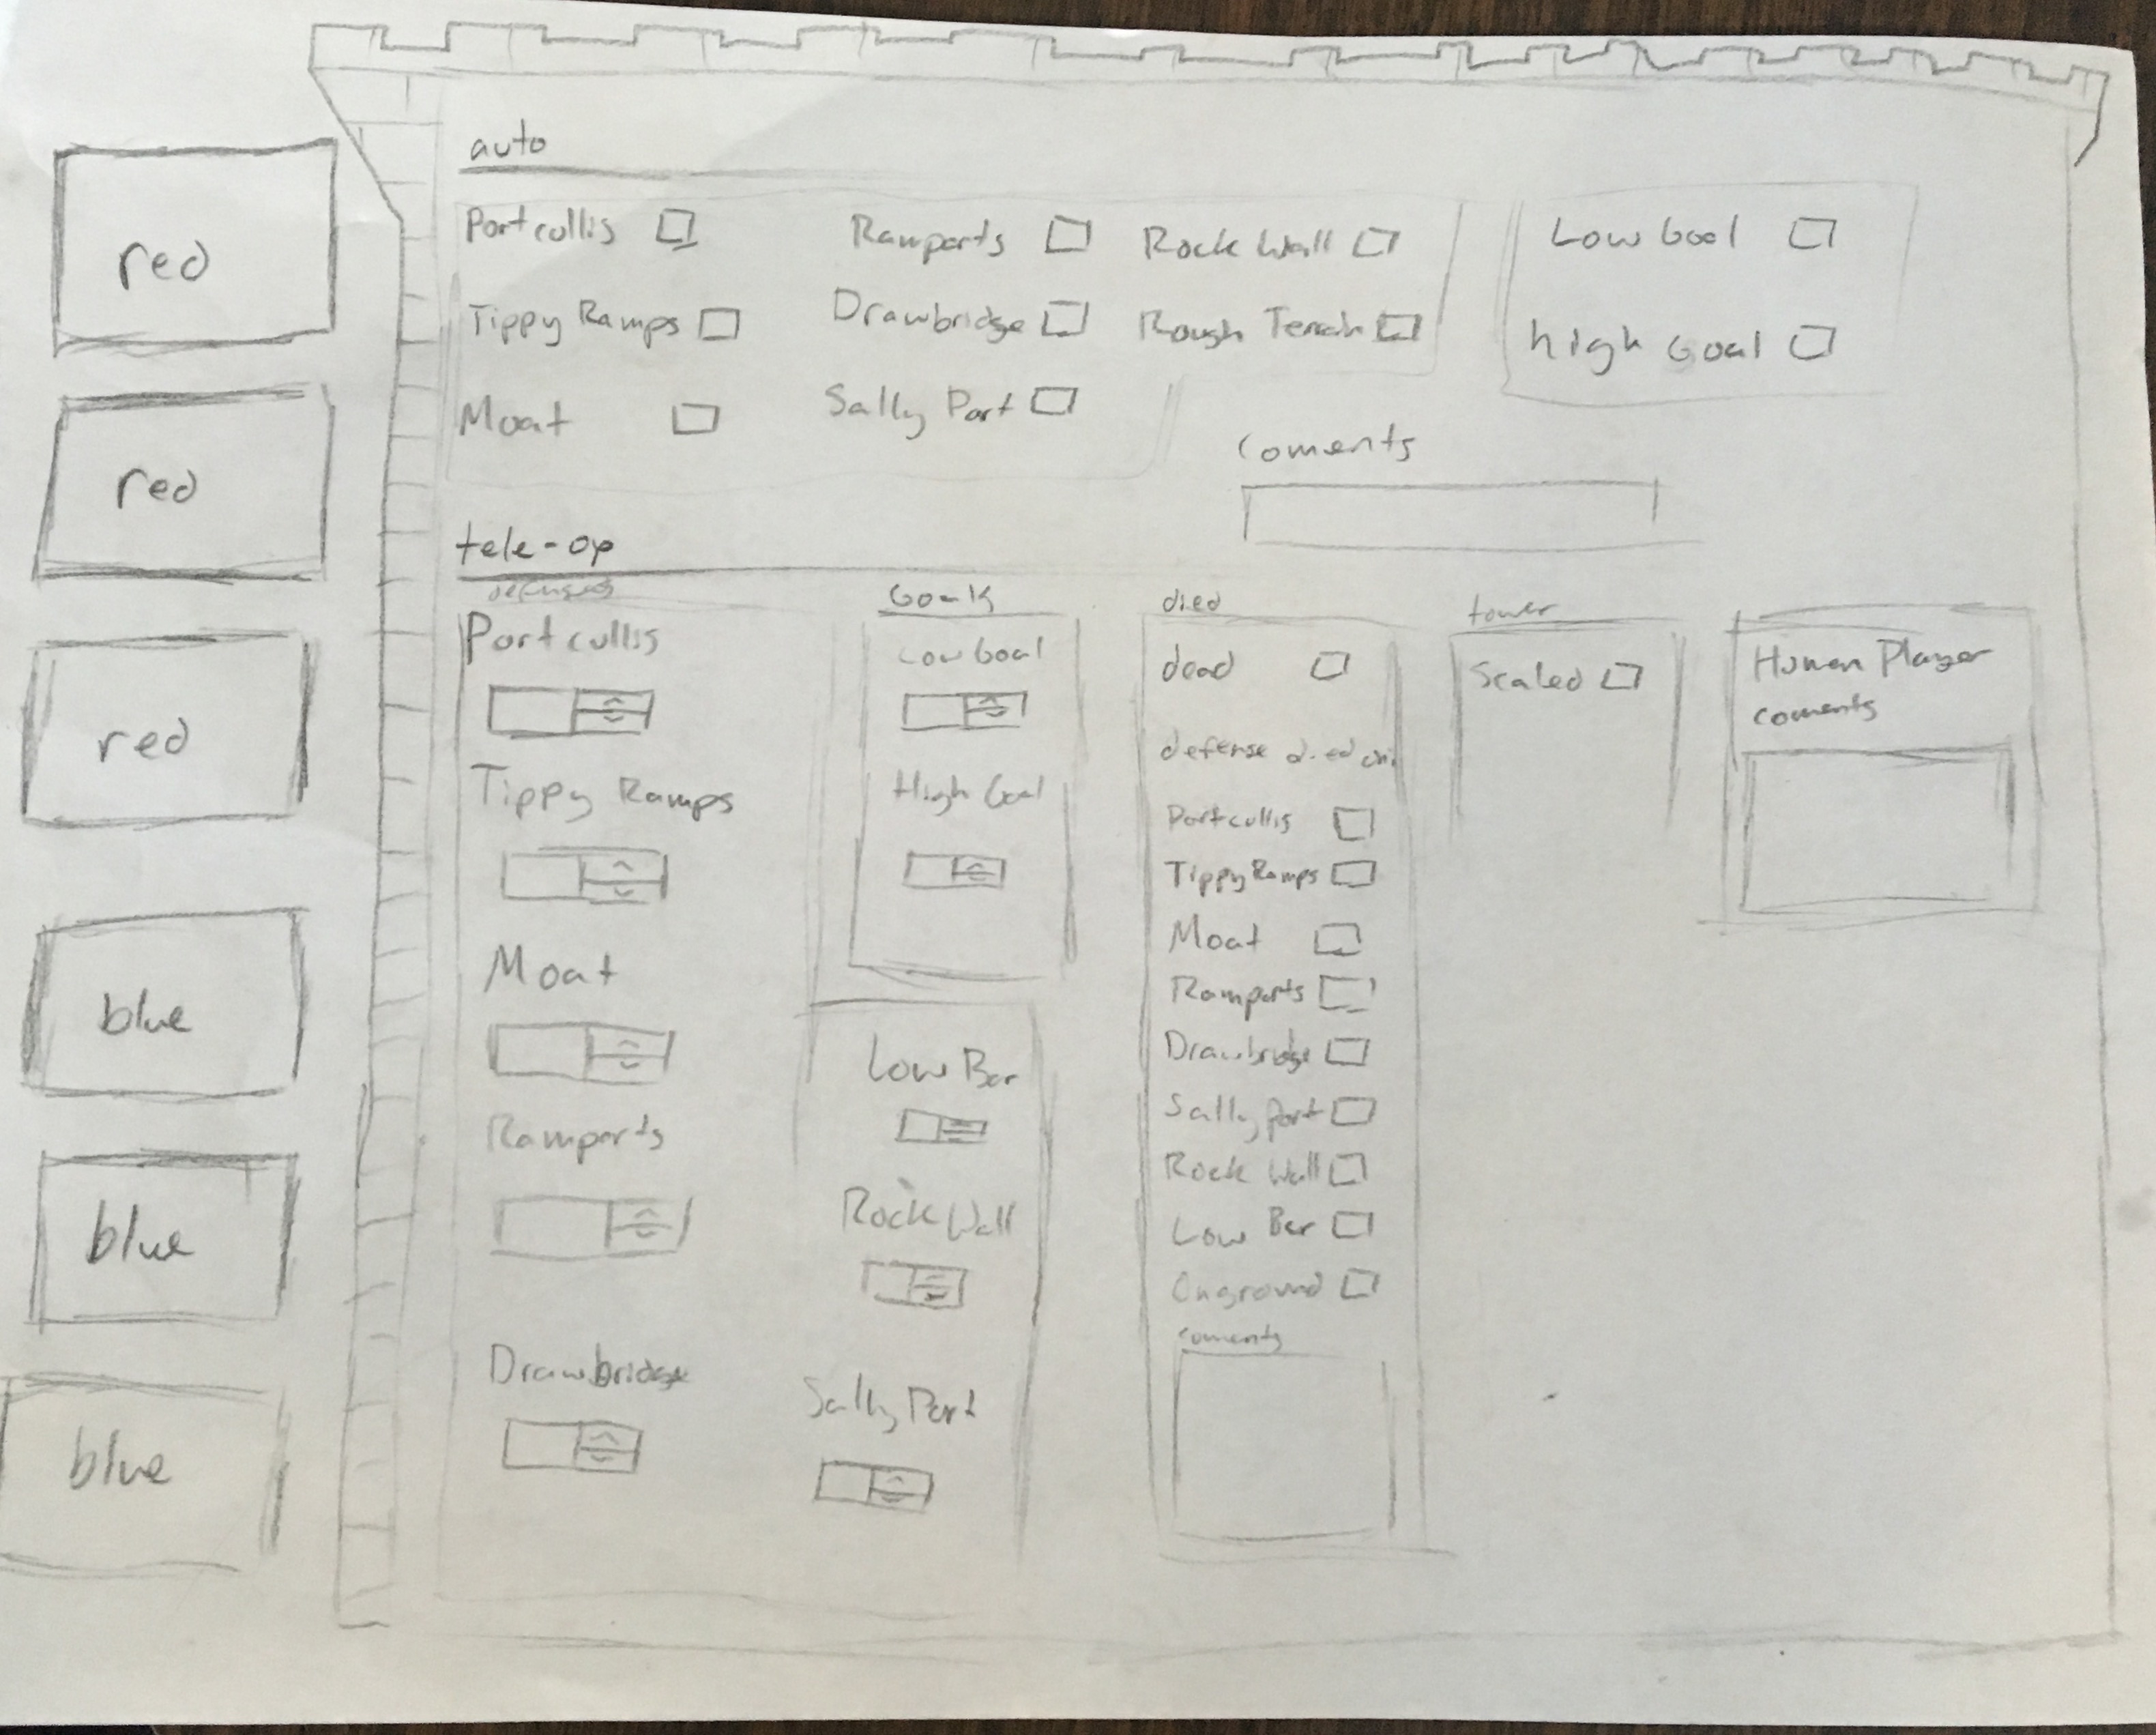 red
red
red
blue
blue
blue
auto
Portcullis
Ramparts
Rock Wall
Low Goal
Tippy Ramps
Drawbridge
Rough Terrain
high Goal
Moat
Sally Port
Coments
tele-op
defenses
Portcullis
Tippy Ramps
Moat
Ramparts
Drawbridge
Goals
Low Goal
High Goal
Low Bar
Rock Wall
Sally Port
died
dead
defense died on:
Portcullis
Tippy Ramps
Moat
Ramparts
Drawbridge
Sally port
Rock Wall
Low Bar
Onground
coments
tower
Scaled
Human Player
coments